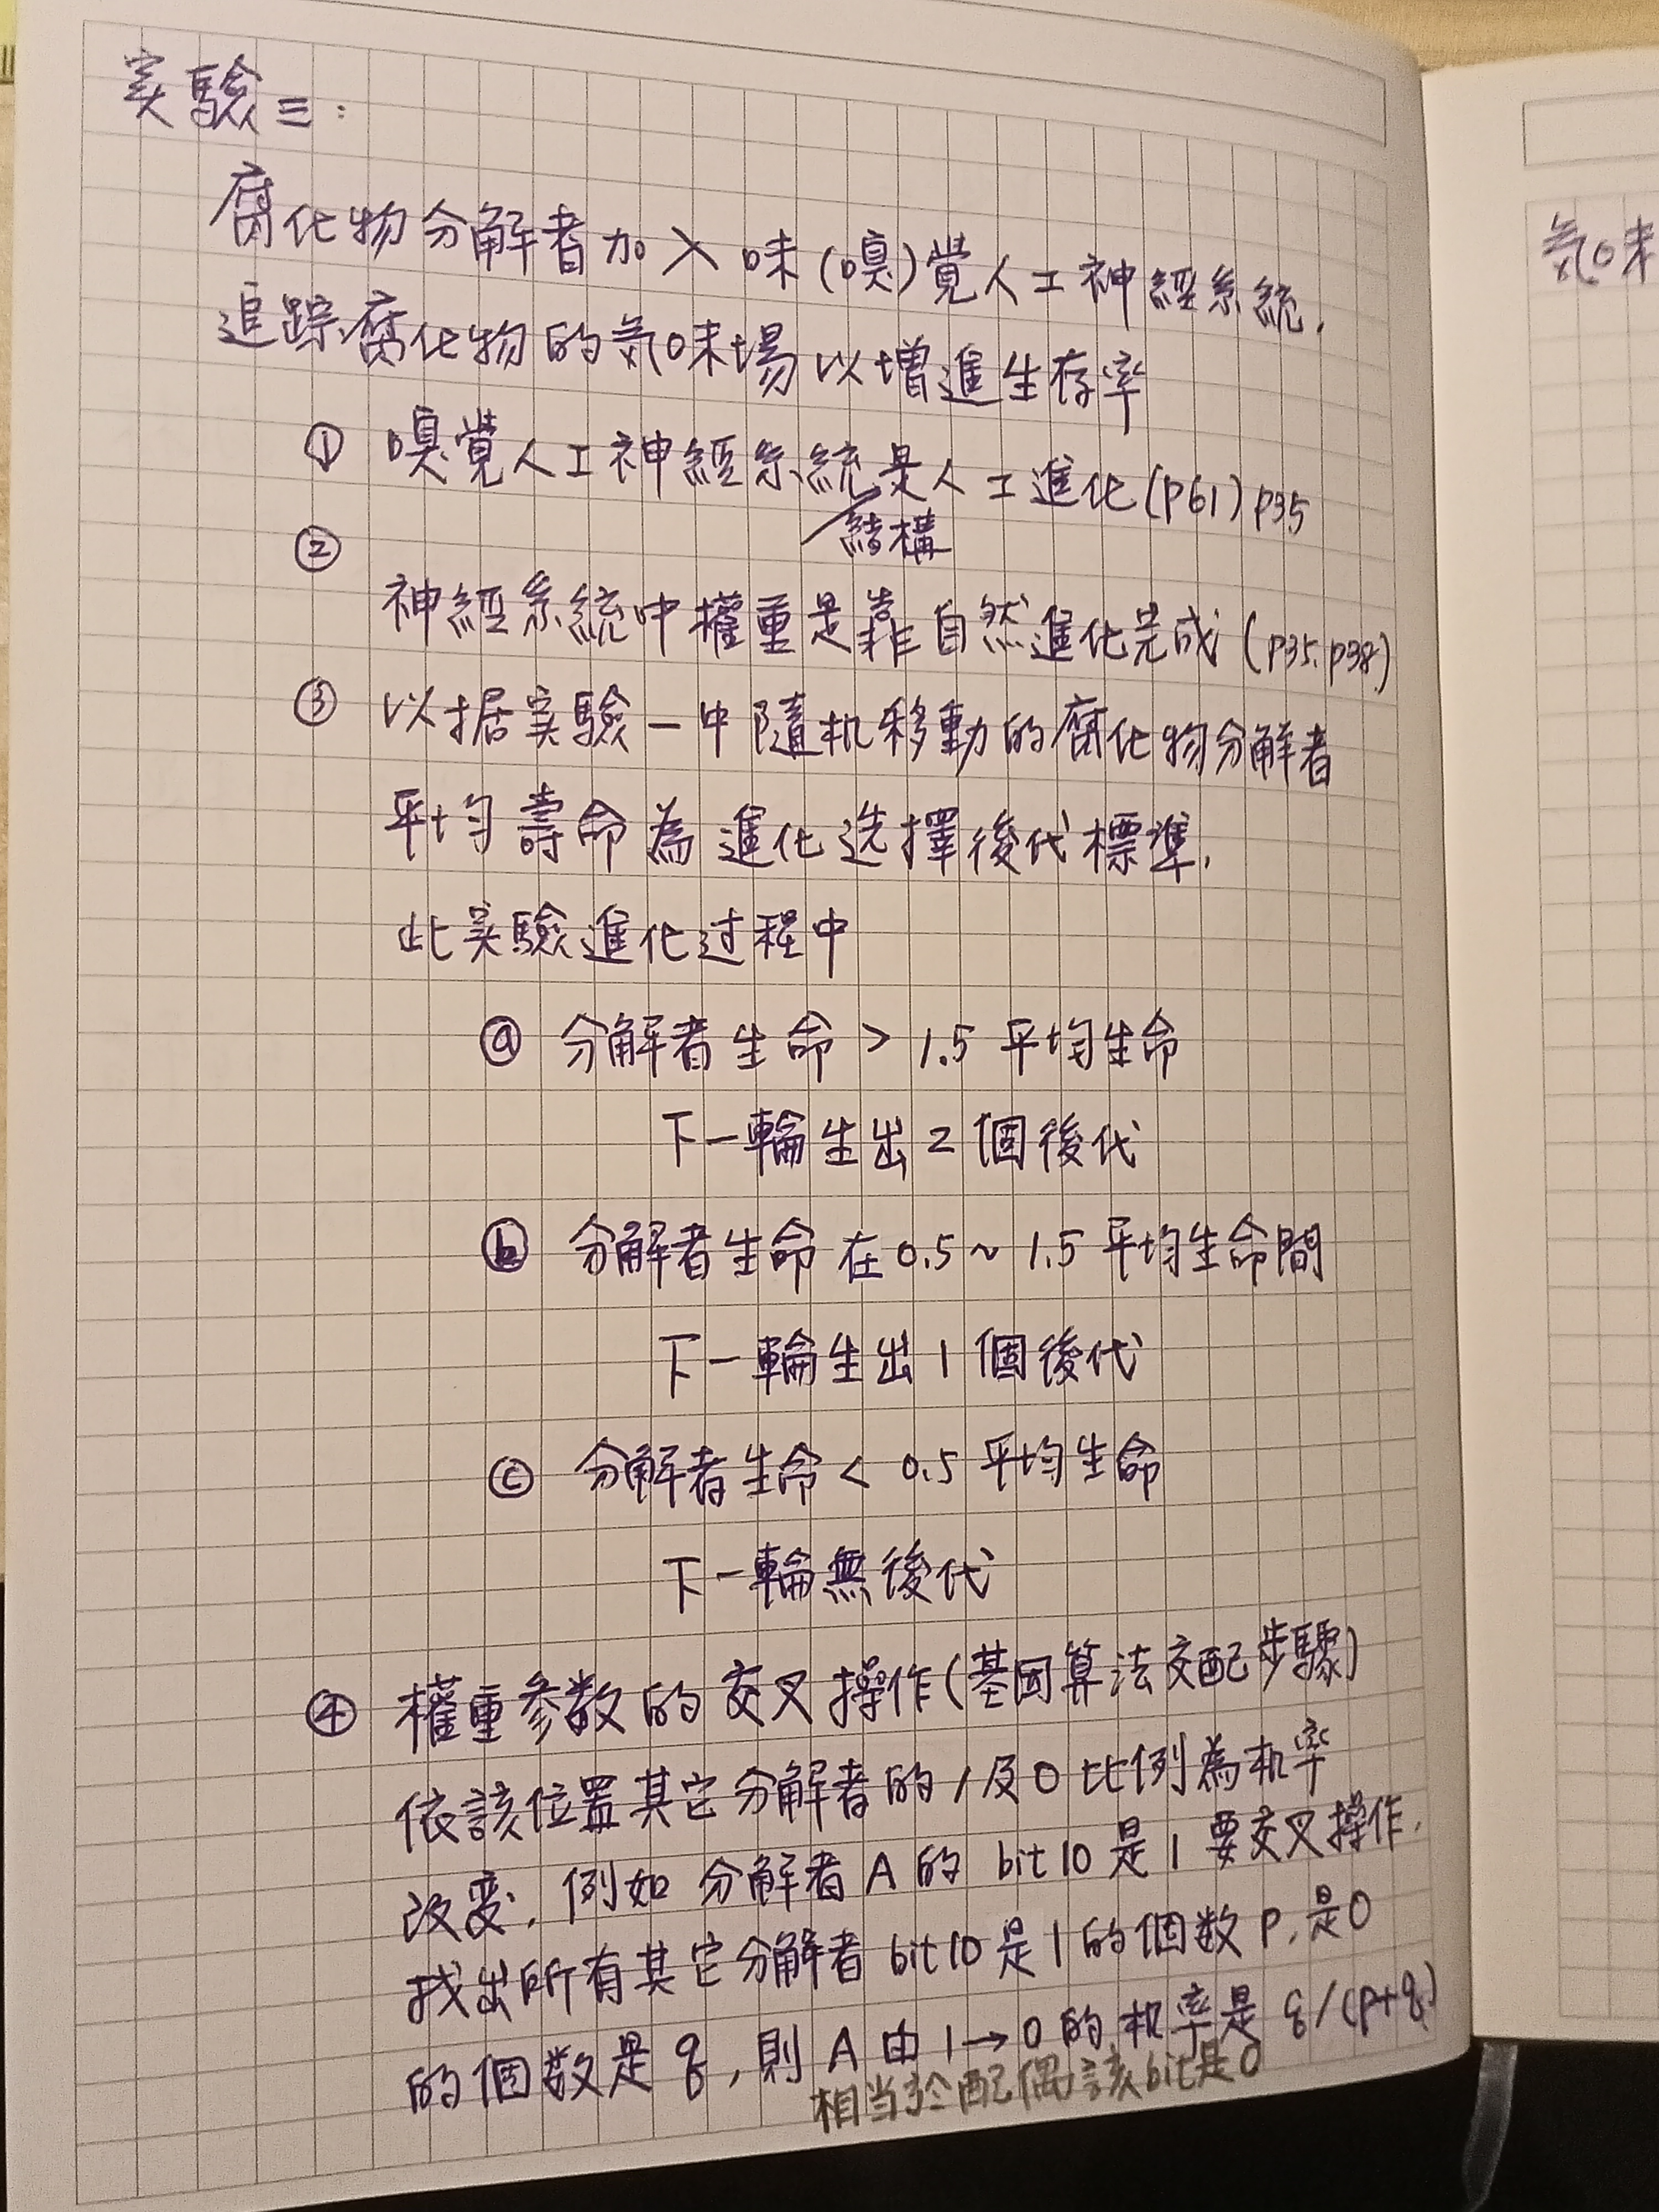 实驗三:
腐化物分解者加入味(嗅)覚人工神經系統,
追踪腐化物的気味場以增進生存率
① 嗅覚人工神經系統是人工進化(P61) P35
結構
②
神經系統中權重是靠自然進化完成(P35, P38)
③ 以据实驗一中隨机移動的腐化物分解者
平均壽命為進化选擇後代標準,
此实驗進化过程中
ⓐ 分解者生命 > 1.5 平均生命
下一輪生出 2 個後代
ⓑ 分解者生命在 0.5 ~ 1.5 平均生命間
下一輪生出 1 個後代
ⓒ 分解者生命 < 0.5 平均生命
下一輪無後代
④ 權重参数的交叉操作(基因算法交配步驟)
依該位置其它分解者的 1 及 0 比例為机率
改变, 例如 分解者 A 的 bit 10 是 1 要交叉操作,
找出所有其它分解者 bit 10 是 1 的個数 p, 是 0
的個数是 q, 則 A 由 1→0 的机率是 q/(p+q)
相当於配偶該bit是0
気味